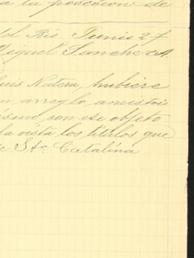 a la posesion de
del Rio Junio 27
Miguel Sanchez
Luis Natera, hubiere
un arreglo, amistoso
ese objeto
la vista los titulos que
Sta Catalina